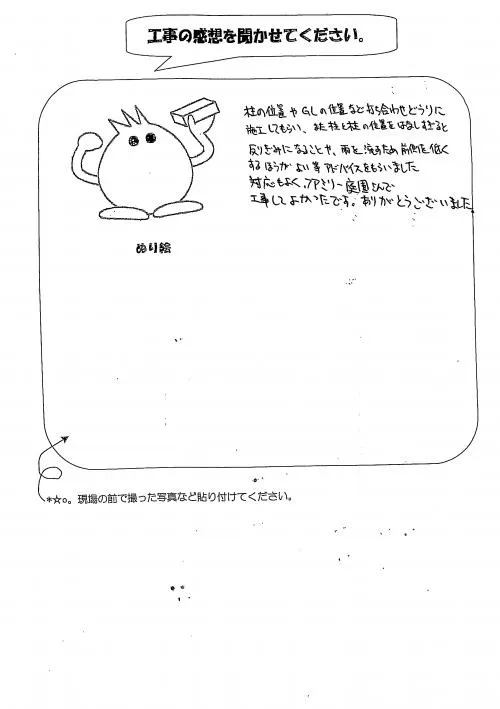 工事の感想を聞かせてください。
柱の位置やGLの位置など打ち合わせどうりに
施工してもらい、また柱と柱の位置をはなしすぎると
反りぎみになることや、雨を流すため前側を低く
するほうがよい等アドバイスをもらいました
対応もよく、ファミリー庭園さんで
工事してよかったです。ありがとうございました
ぬり絵
*☆o。現場の前で撮った写真など貼り付けてください。